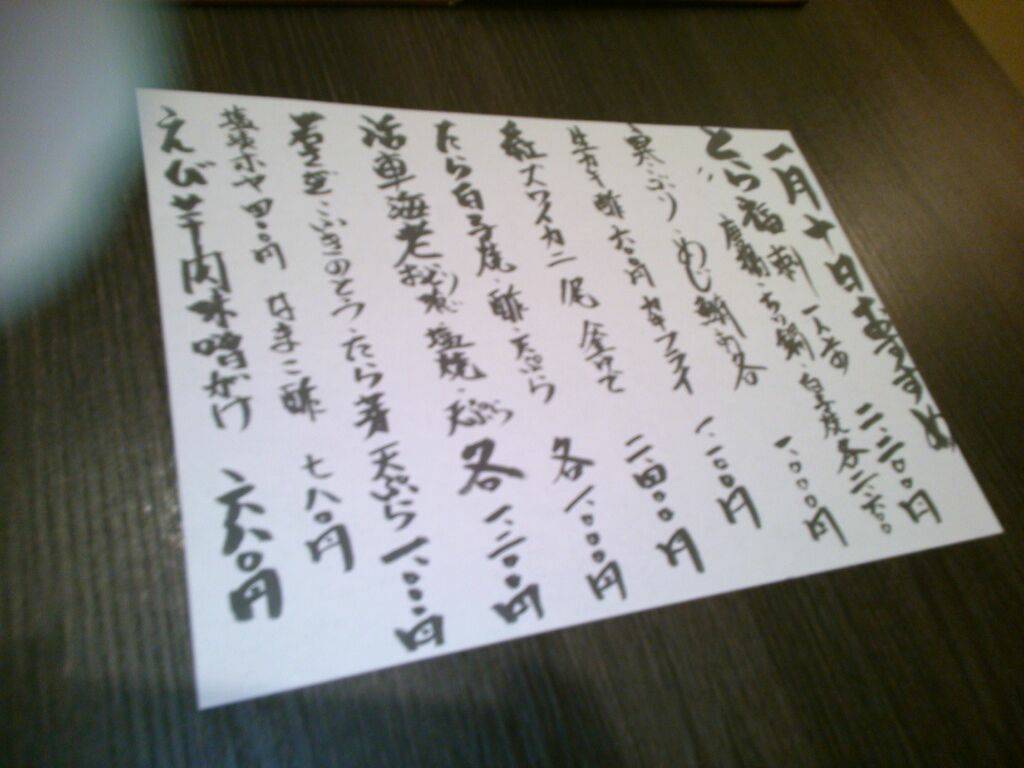 一月十日おすすめ
とら福刺 一人前 二、二〇〇円
唐揚・ちり鍋・白子 各二、六〇〇
寒ぶり・めじ鮪 各 一、〇〇〇円
生カキ酢 六〇〇円 カキフライ 一、二〇〇円
紅ズワイカニ 一尾 釜ゆで 二、四〇〇円
たら白子 酢・天ぷら 各 一、〇〇〇円
活車海老 おどり 塩焼・天ぷら 各 一、二〇〇円
ふきのとう・たら芽 天ぷら 一、〇〇〇円
ホヤ 円 なまこ酢 七八〇円
えび芋肉味噌がけ 六八〇円